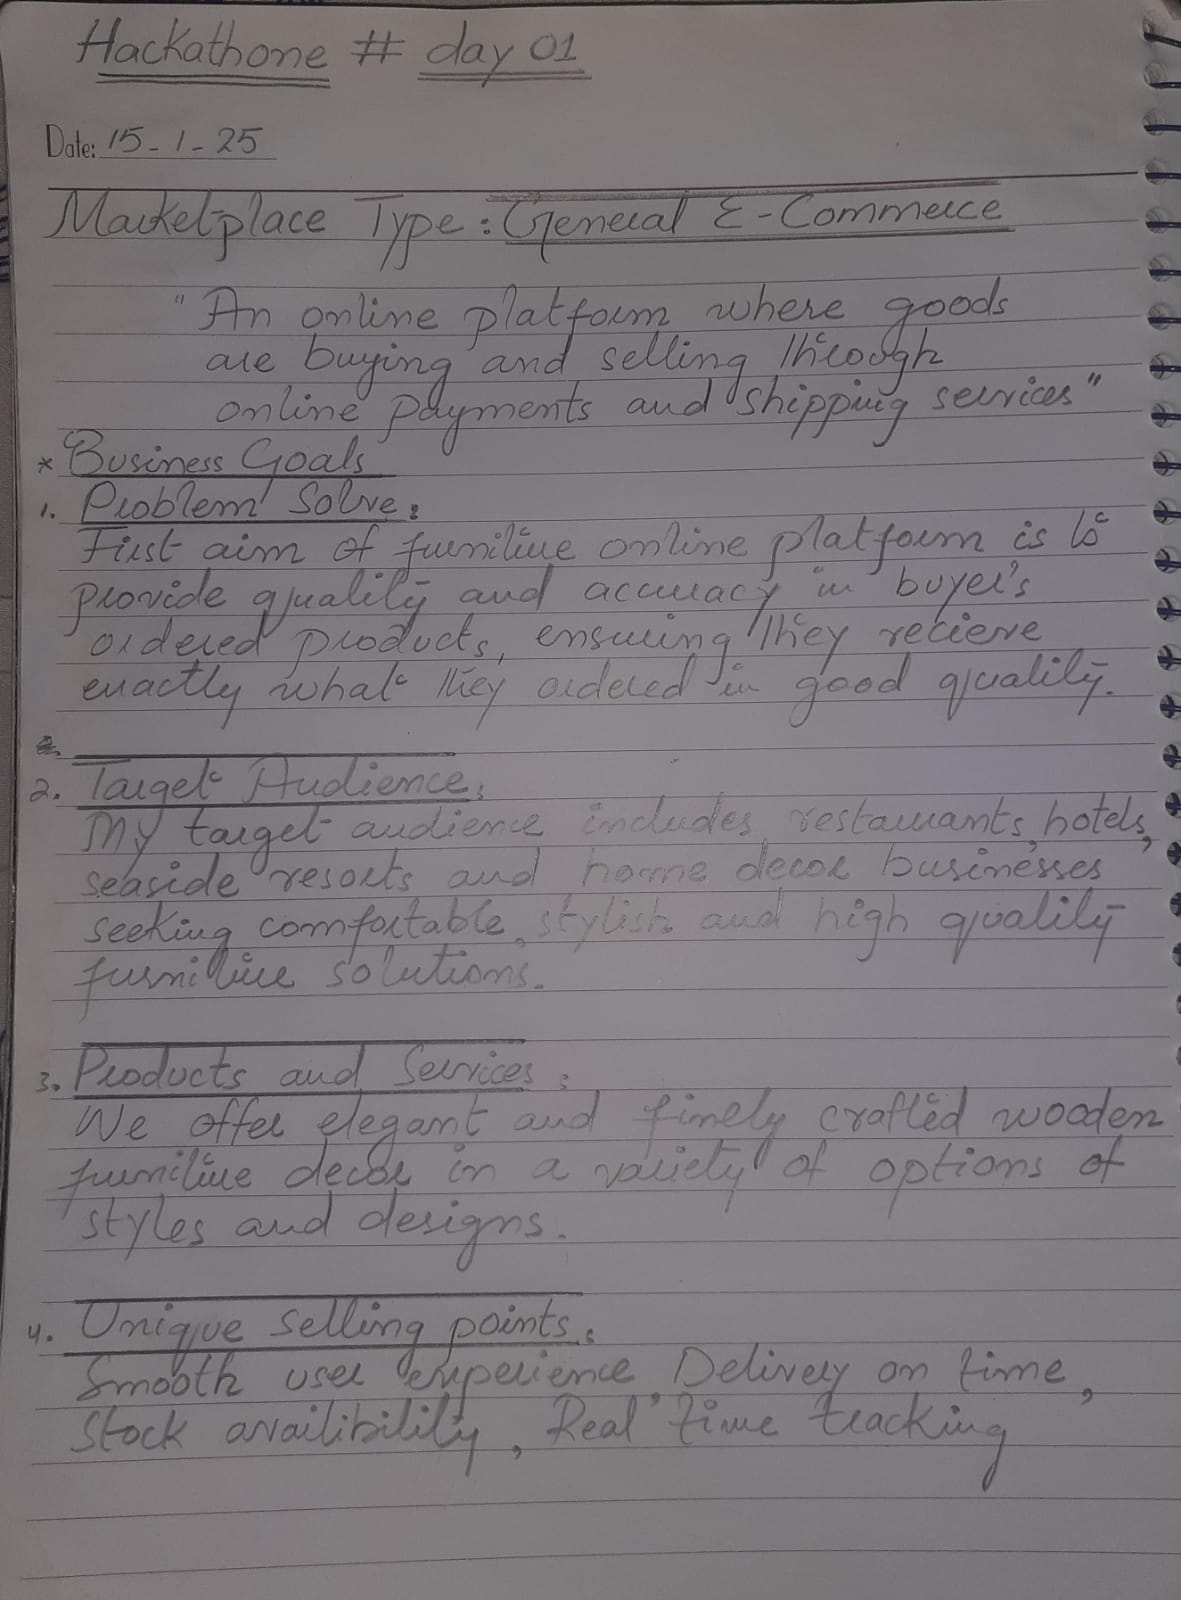 Hackathone # day 01
Date: 15-1-25
Marketplace Type: General E-Commerce
"An online platform where goods
are buying and selling through
online payments and shipping services"
* Business Goals
1. Problem Solve:
First aim of furniture online platform is to
provide quality and accuracy in buyer's
ordered products, ensuring they recieve
exactly what they ordered in good quality.
2. Target Audience:
My target audience includes restaurants, hotels,
seaside resorts and home decor businesses
seeking comfortable, stylish and high quality
furniture solutions.
3. Products and Services:
We offer elegant and finely crafted wooden
furniture decor in a variety of options of
styles and designs.
4. Unique selling points:
Smooth user experience, Delivery on time,
Stock availibility, Real time tracking